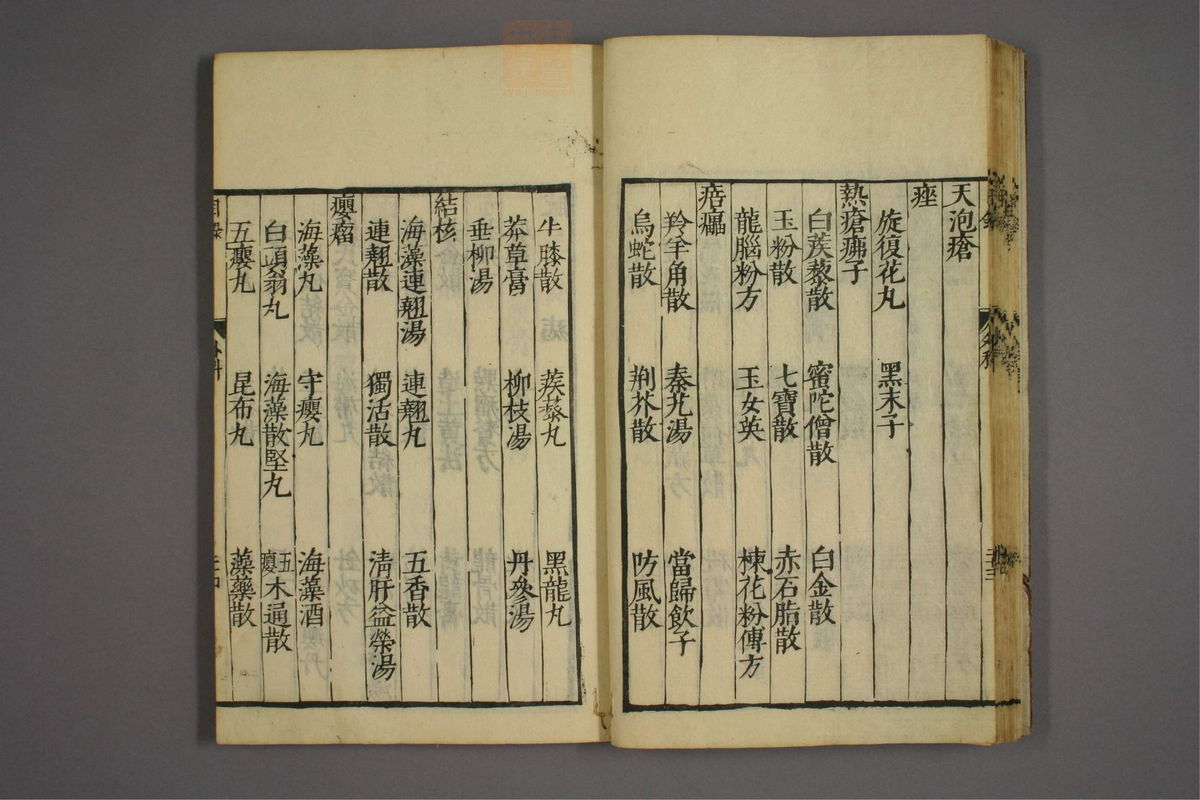 天泡瘡
痤
旋復花丸 黑末子
熱瘡疿子
白蒺藜散 蜜陀僧散 白金散
玉粉散 七寶散 赤石脂散
龍腦粉方 玉女英 楝花粉傳方
㾦𤺋
羚羊角散 秦艽湯 當歸飲子
烏蛇散 荆芥散 防風散
牛膝散 蒺藜丸 黑龍丸
莽草膏 柳枝湯 丹參湯
垂柳湯
結核
海藻連翹湯 連翹丸 五香散
連翹散 獨活散 清肝益榮湯
癭瘤
海藻丸 守癭丸 海藻酒
白頭翁丸 海藻散堅丸 五癭木通散
五癭丸 昆布丸 藻藥散